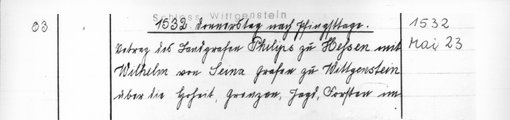 Schloss Wittgenstein
03 1532 Donnerstag nach Pfingsttage. 1532
Vertrag des Landgrafen Philips zu Hessen mit Mai 23
Wilhelm von Seina Grafen zu Wittgenstein
über die Hoheit, Grenzen, Jagd, Forsten im